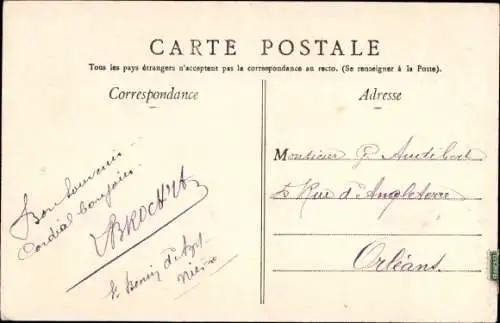 CARTE POSTALE
Tous les pays étrangers n'acceptent pas la correspondance au recto. (Se renseigner à la Poste).
Correspondance
Adresse
Bon souvenir
Cordial bonjour
BROCHUT
St Benin d'Azy
Nièvre
Monsieur G. Audebert
5 Rue d'Angleterre
Orléans.